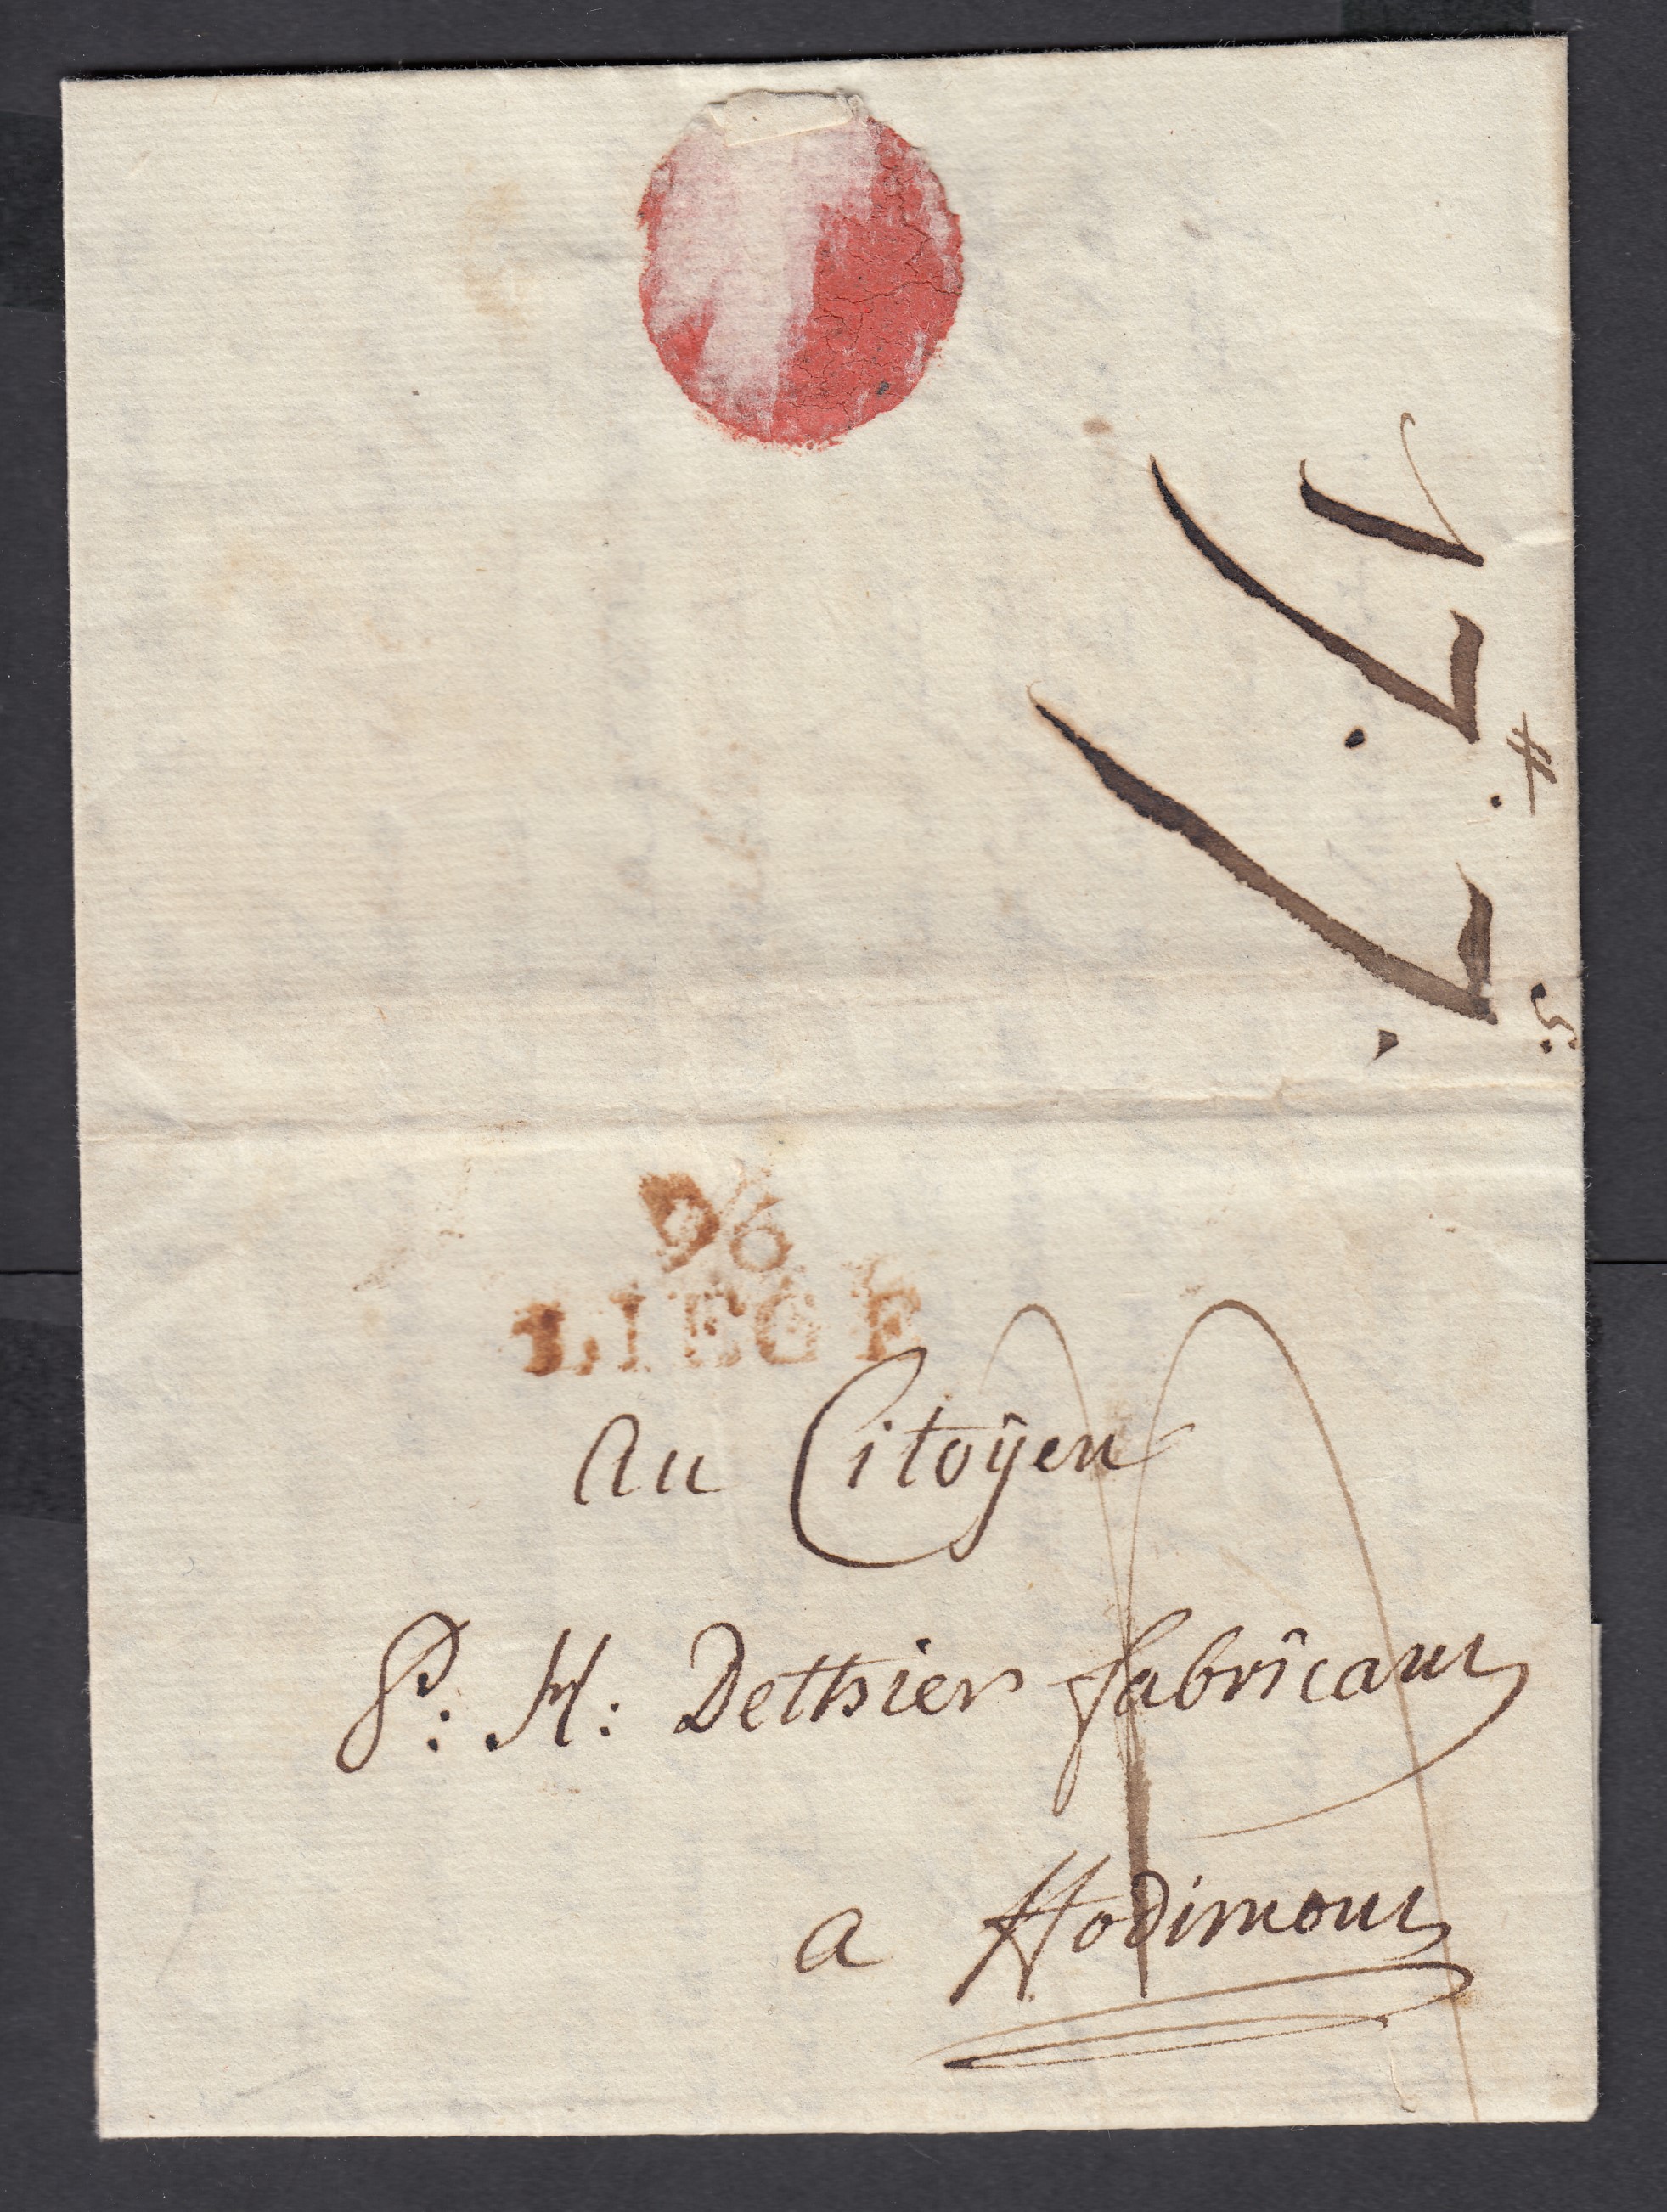 17.. 7.
96
LIEGE
Au Citoÿen
P: H: Dethier fabricant
a Hodimont